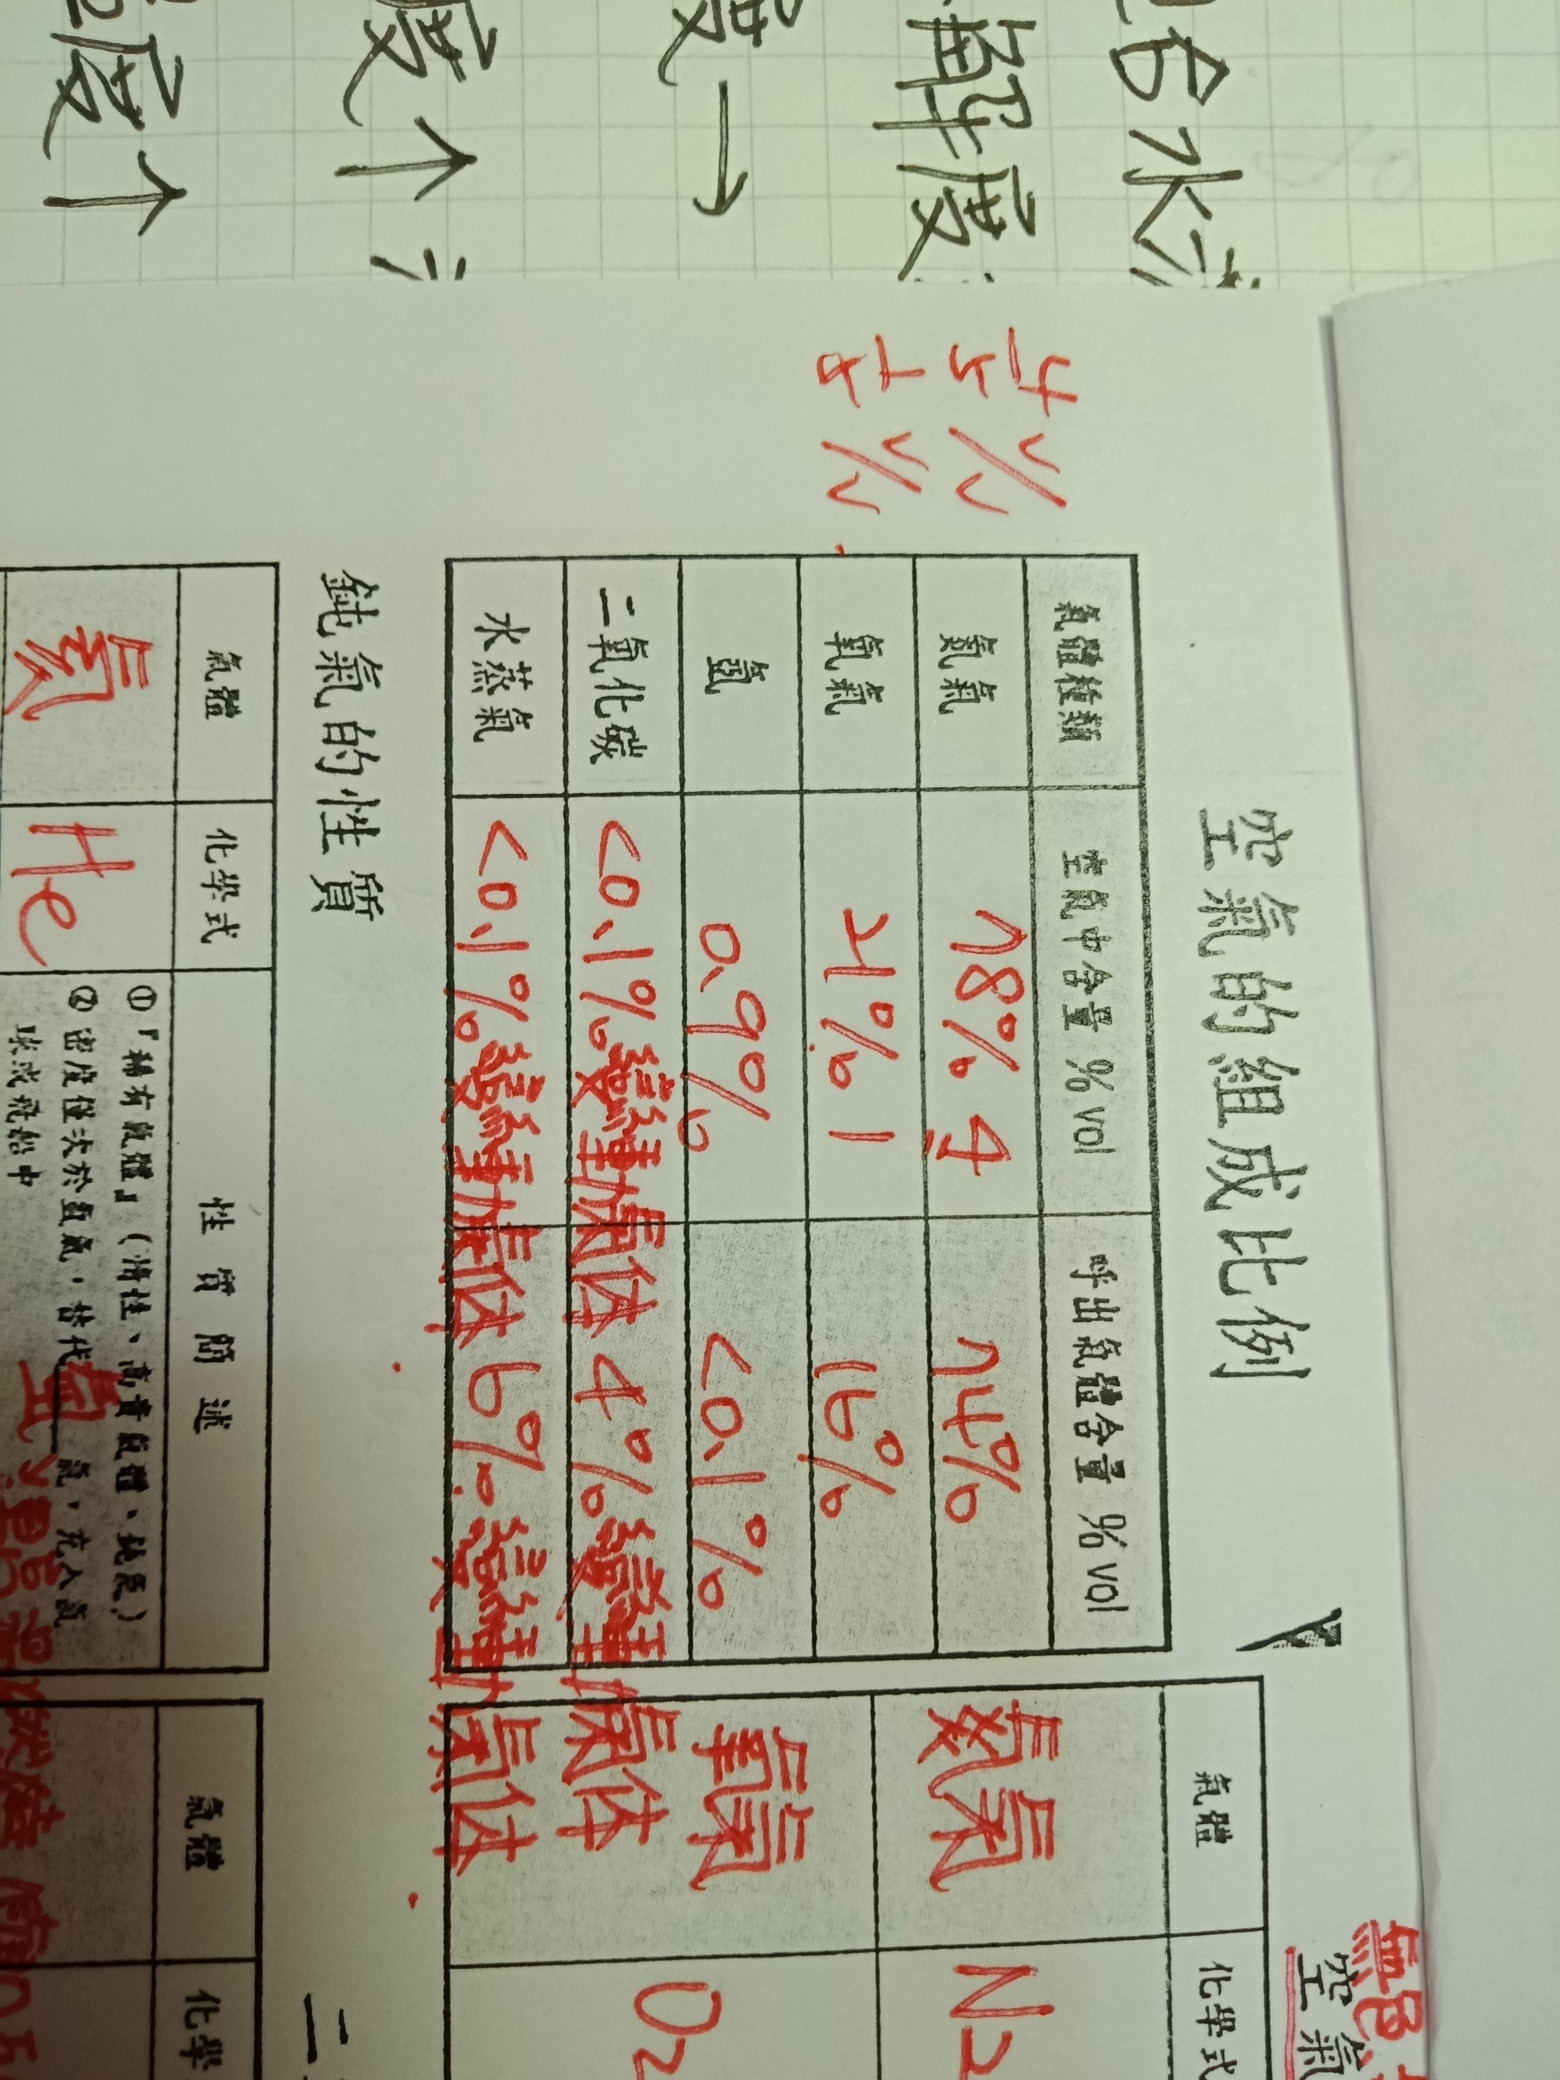 包水
解度
度→
度↑
度↑
空氣的組成比例
4/5 V/V
1/5 V/V
氣體種類 空氣中含量 %vol 呼出氣體含量 %vol
氮氣 78% 4 74%
氧氣 21% 1 16%
氬 0.9% <0.1%
二氧化碳 <0.1%變動氣体 4%變動氣体
水蒸氣 <0.1%變動氣体 6%變動氣体
鈍氣的性質
氣體 化學式 性質簡述
氦 He ①『稀有氣體』(惰性、高貴氣體、鈍氣)
②密度僅次於氫氣,替代 氫 氣,充入氣
球或飛船中
空氣
氣體 化學式
氮氣 N2
氧氣 O2
氣體 化學
二